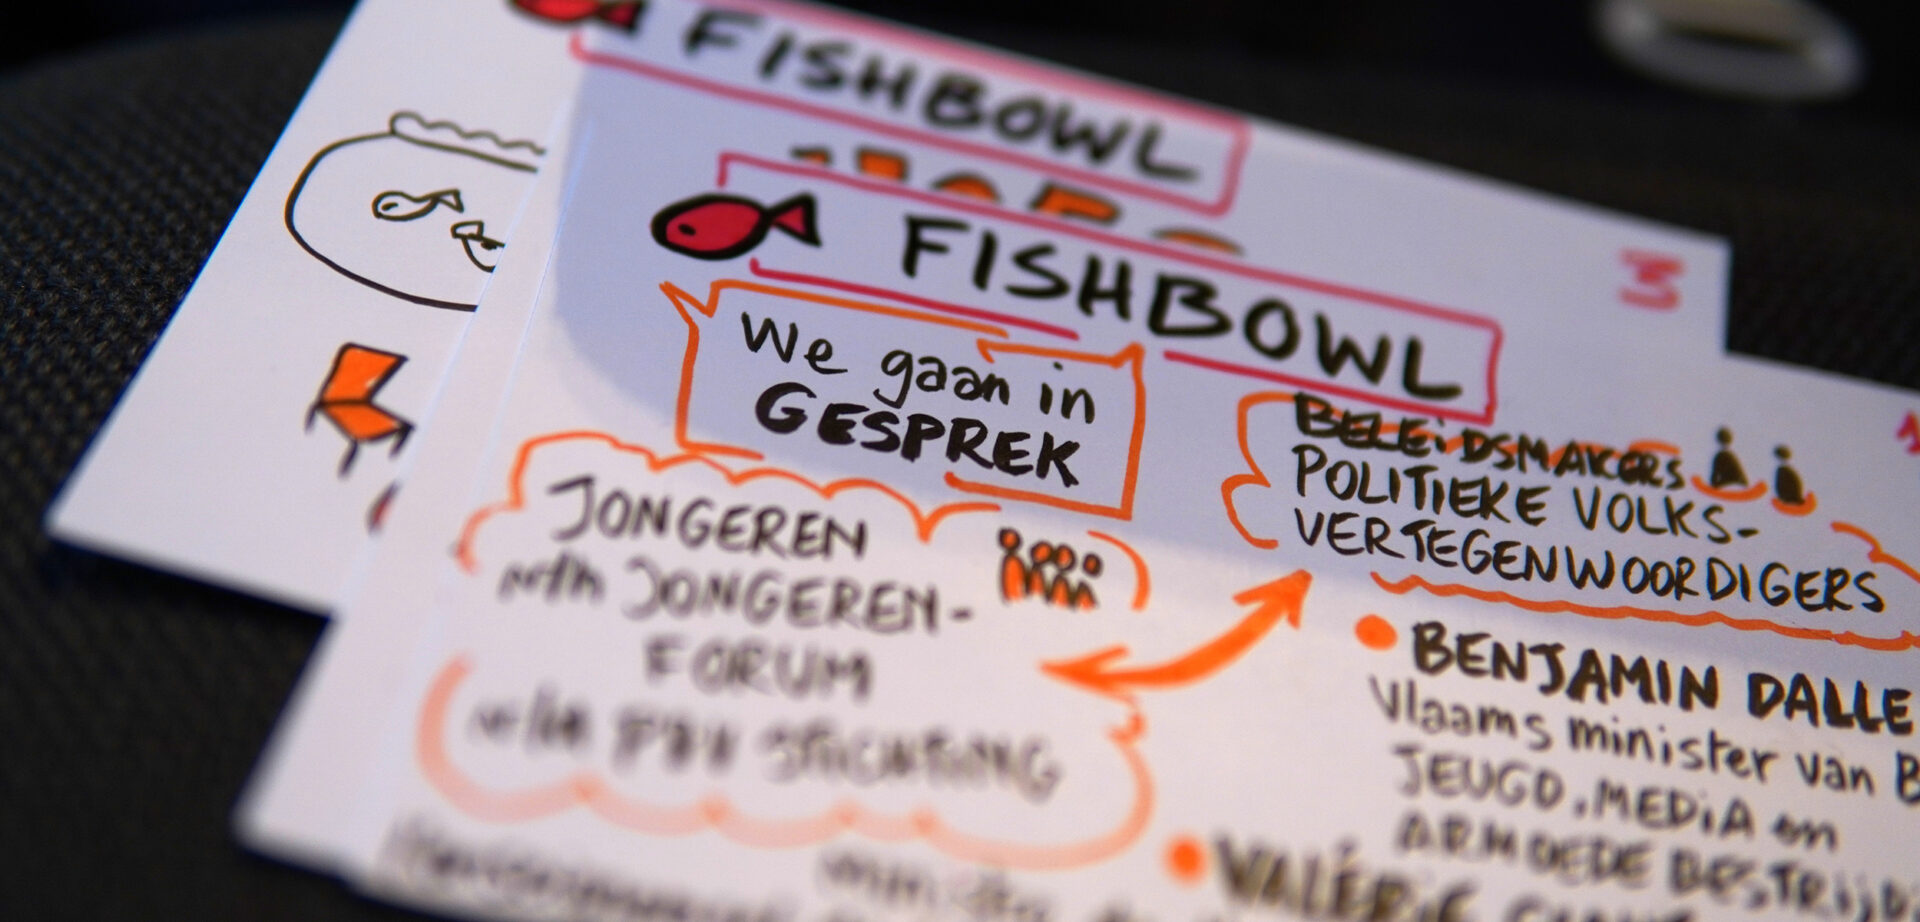 FISHBOWL
3
FISHBOWL
We gaan in
GESPREK
JONGEREN
JONGEREN-
FORUM
STICHTING
BELEIDSMAKERS
POLITIEKE VOLKS-
VERTEGENWOORDIGERS
BENJAMIN DALLE
Vlaams minister van B
JEUGD, MEDIA en
ARMOEDE BESTRIJD
VALÉRIE